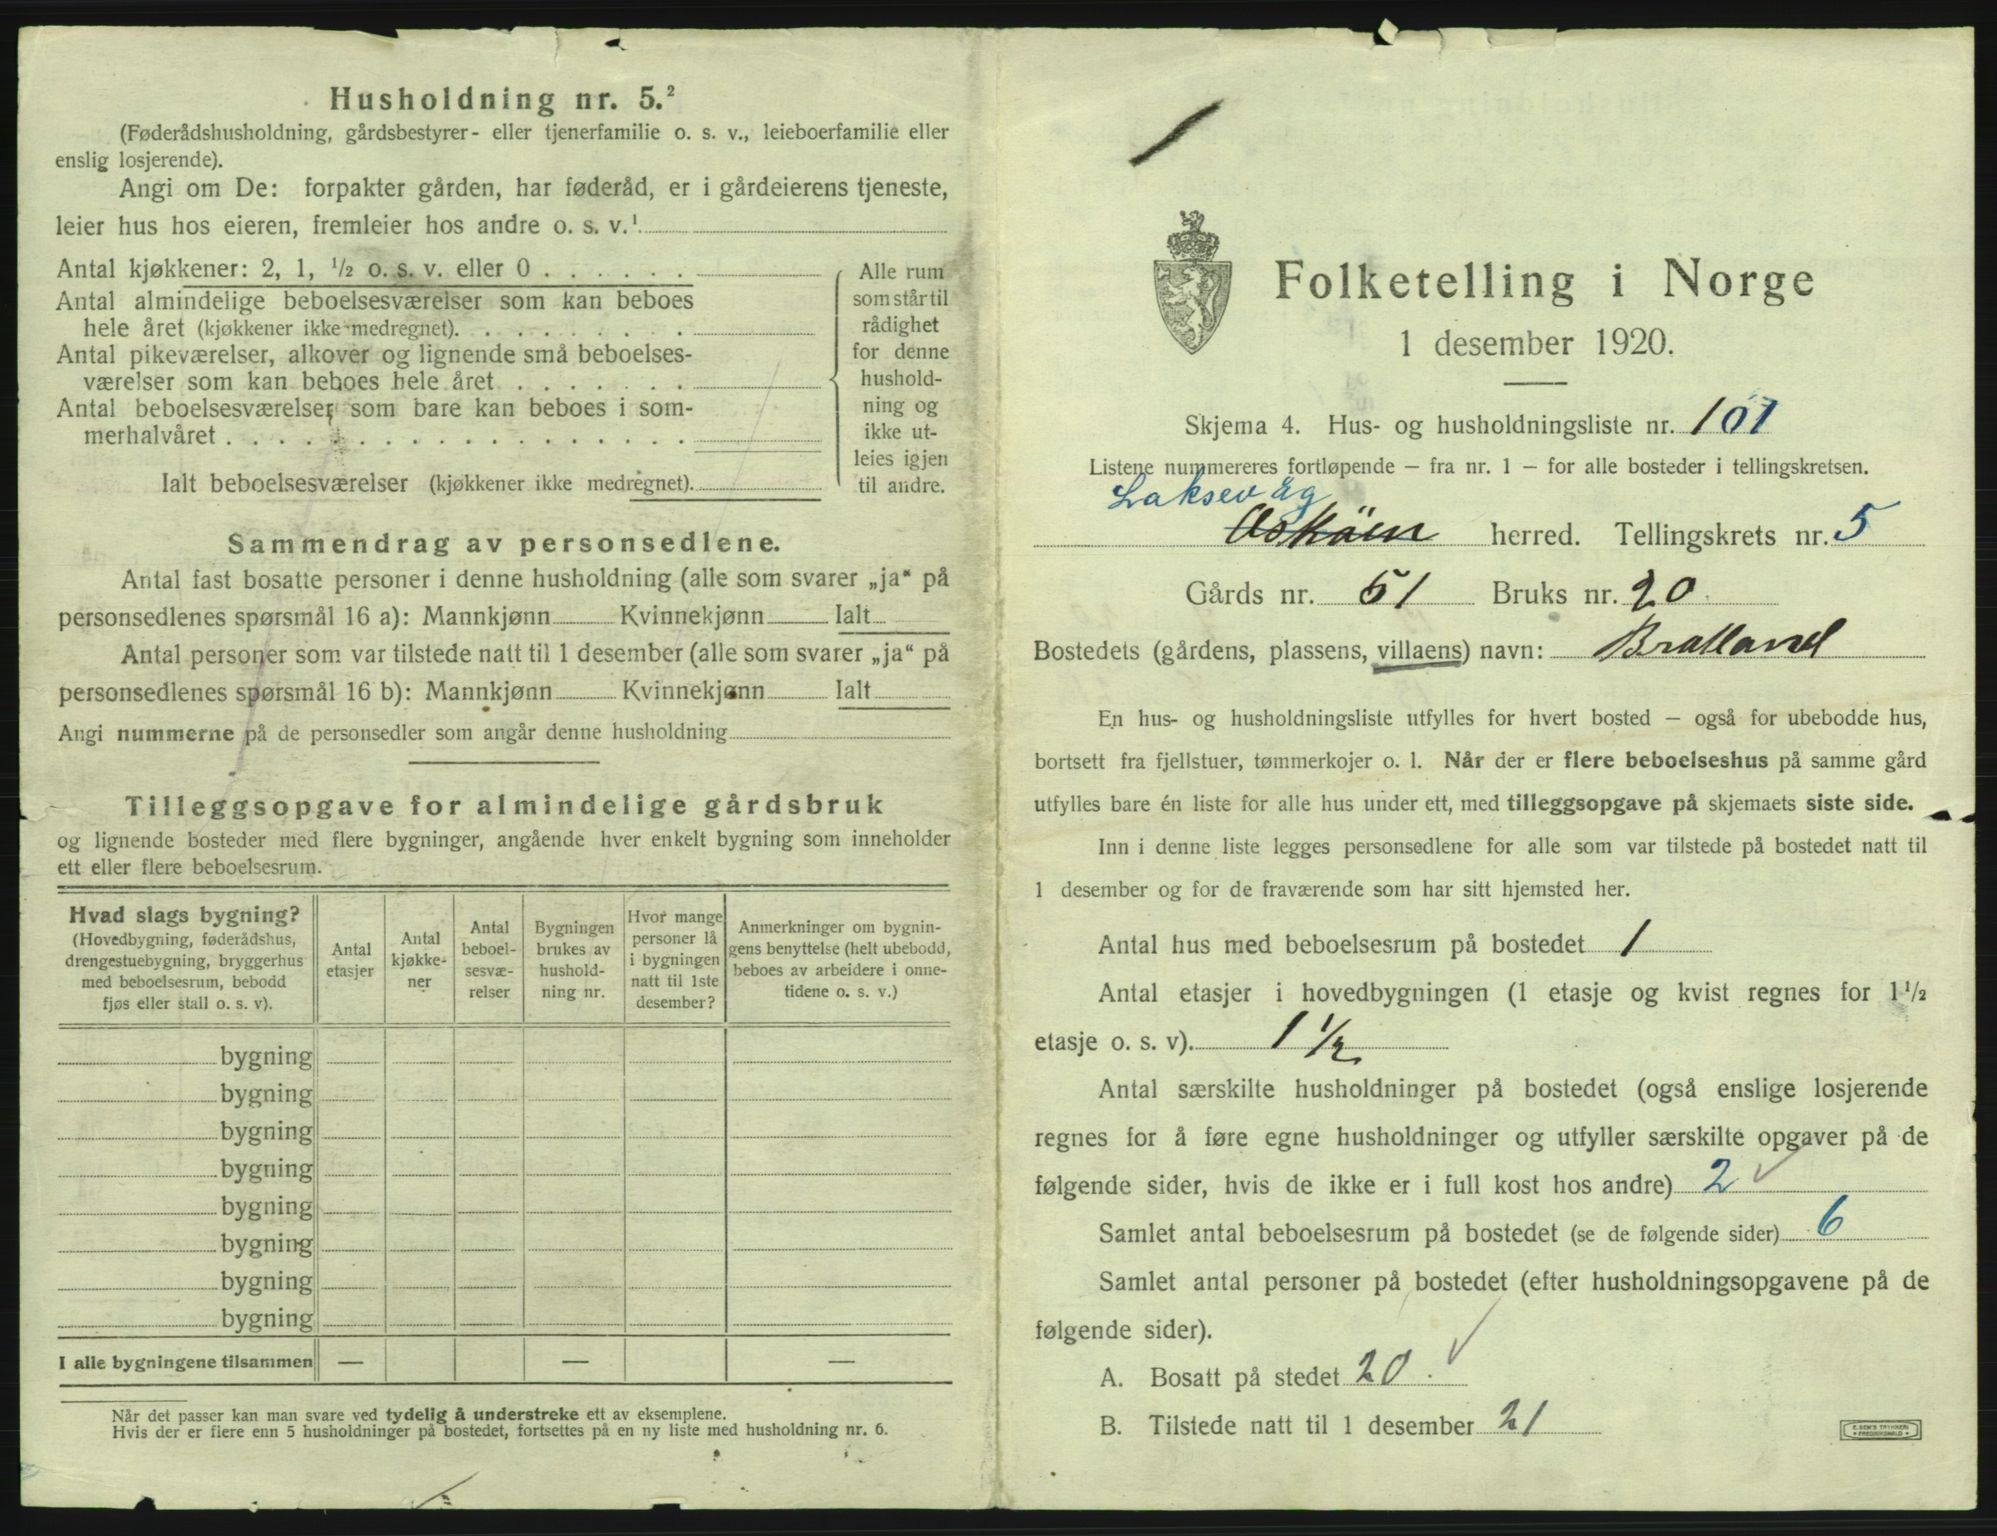 Husholdning nr. 5.²
(Føderådshusholdning, gårdsbestyrer- eller tjenerfamilie o. s. v., leieboerfamilie eller
enslig losjerende).
Angi om De: forpakter gården, har føderåd, er i gårdeierens tjeneste,
leier hus hos eieren, fremleier hos andre o. s. v.¹
Antal kjøkkener: 2, 1, ½ o. s. v. eller 0
Antal almindelige beboelsesværelser som kan beboes
hele året (kjøkkener ikke medregnet).
Antal pikeværelser, alkover og lignende små beboelses-
værelser som kan beboes hele året
Antal beboelsesværelser som bare kan beboes i som-
merhalvåret
Ialt beboelsesværelser (kjøkkener ikke medregnet).
Alle rum
som står til
rådighet
for denne
hushold-
ning og
ikke ut-
leies igjen
til andre.
Sammendrag av personsedlene.
Antal fast bosatte personer i denne husholdning (alle som svarer „ja“ på
personsedlenes spørsmål 16 a): Mannkjønn Kvinnekjønn Ialt
Antal personer som var tilstede natt til 1 desember (alle som svarer „ja“ på
personsedlenes spørsmål 16 b): Mannkjønn Kvinnekjønn Ialt
Angi nummerne på de personsedler som angår denne husholdning
Tilleggsopgave for almindelige gårdsbruk
og lignende bosteder med flere bygninger, angående hver enkelt bygning som inneholder
ett eller flere beboelsesrum.
Hvad slags bygning?
(Hovedbygning, føderådshus,
drengestuebygning, bryggerhus
med beboelsesrum, bebodd
fjøs eller stall o. s. v).
Antal
etasjer
Antal
kjøkke-
ner
Antal
beboel-
sesvæ-
relser
Bygningen
brukes av
hushold-
ning nr.
Hvor mange
personer lå
i bygningen
natt til 1ste
desember?
Anmerkninger om bygnin-
gens benyttelse (helt ubebodd,
beboes av arbeidere i onne-
tidene o. s. v.)
bygning
bygning
bygning
bygning
bygning
bygning
bygning
bygning
I alle bygningene tilsammen — — —
Når det passer kan man svare ved tydelig å understreke ett av eksemplene.
Hvis der er flere enn 5 husholdninger på bostedet, fortsettes på en ny liste med husholdning nr. 6.
Folketelling i Norge
1 desember 1920.
Skjema 4. Hus- og husholdningsliste nr. 101
Listene nummereres fortløpende — fra nr. 1 — for alle bosteder i tellingskretsen.
Laksevåg
Askøen herred. Tellingskrets nr. 5
Gårds nr. 51 Bruks nr. 20
Bostedets (gårdens, plassens, villaens) navn: Bratland
En hus- og husholdningsliste utfylles for hvert bosted — også for ubebodde hus,
bortsett fra fjellstuer, tømmerkojer o. l. Når der er flere beboelseshus på samme gård
utfylles bare én liste for alle hus under ett, med tilleggsopgave på skjemaets siste side.
Inn i denne liste legges personsedlene for alle som var tilstede på bostedet natt til
1 desember og for de fraværende som har sitt hjemsted her.
Antal hus med beboelsesrum på bostedet 1
Antal etasjer i hovedbygningen (1 etasje og kvist regnes for 1½
etasje o. s. v). 1 ½
Antal særskilte husholdninger på bostedet (også enslige losjerende
regnes for å føre egne husholdninger og utfyller særskilte opgaver på de
følgende sider, hvis de ikke er i full kost hos andre) 2
Samlet antal beboelsesrum på bostedet (se de følgende sider) 6
Samlet antal personer på bostedet (efter husholdningsopgavene på de
følgende sider).
A. Bosatt på stedet 20
B. Tilstede natt til 1 desember 21